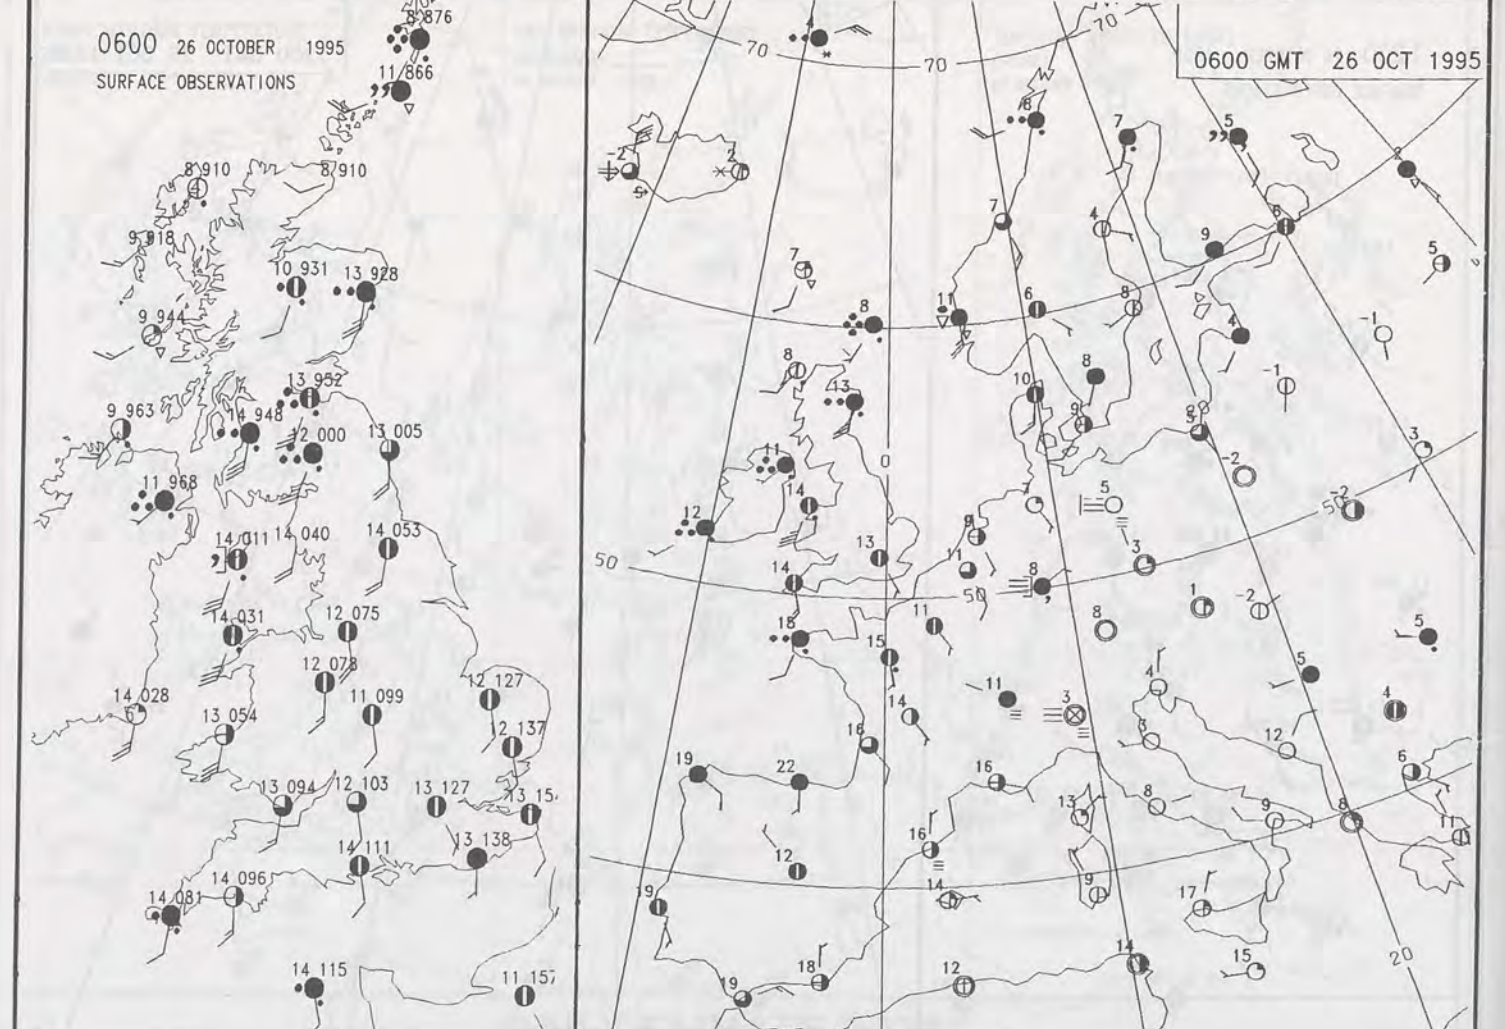 8 876
0600 26 OCTOBER 1995
SURFACE OBSERVATIONS
11 866
8 910
8 910
9 918
10 931
13 928
9 944
13 952
9 963
14 948
12 000
13 005
11 968
14 011
14 040
14 053
14 031
12 075
12 078
14 028
11 099
12 127
13 054
12 137
13 094
12 103
13 127
14 111
13 138
14 096
14 081
14 115
11 157
0600 GMT 26 OCT 1995
4
70
70
70
8
7
5
2
-2
2
7
4
6
9
5
7
8
11
6
8
-1
4
8
13
10
8
-1
9
0
11
14
12
-2
3
7
5
-2
50
9
13
11
3
50
14
8
50
1
-2
18
11
8
5
15
5
11
3
4
4
14
18
3
12
19
22
16
6
13
8
9
8
11
16
12
14
9
17
19
18
14
15
20
12
19